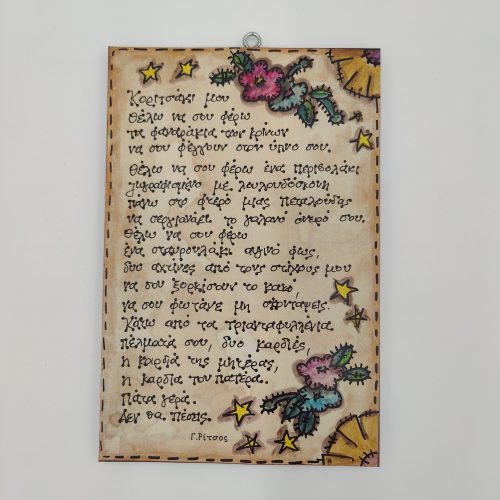 Κοριτσάκι μου
θέλω να σου φέρω
τα φαναράκια των κρίνων
να σου φέγγουν στον ύπνο σου.
Θέλω να σου φέρω ένα περιβολάκι
ζωγραφισμένο με λουλουδόσκονη
πάνω στο φτερό μιας πεταλούδας
να σεργιανάει το γαλανό όνειρό σου.
Θέλω να σου φέρω
ένα σταυρουλάκι αυγινό φως,
δυο αχτίνες από τους στίχους μου
να σου ξορκίσουν το κακό,
να σου φωτάνε μη σκοντάψεις.
Κάτω από τα τριανταφυλλένια
πέλματά σου, δυο καρδιές,
η καρδιά της μητέρας,
η καρδιά του πατέρα.
Πάτα γερά.
Δεν θα πέσεις.
Γ. Ρίτσος